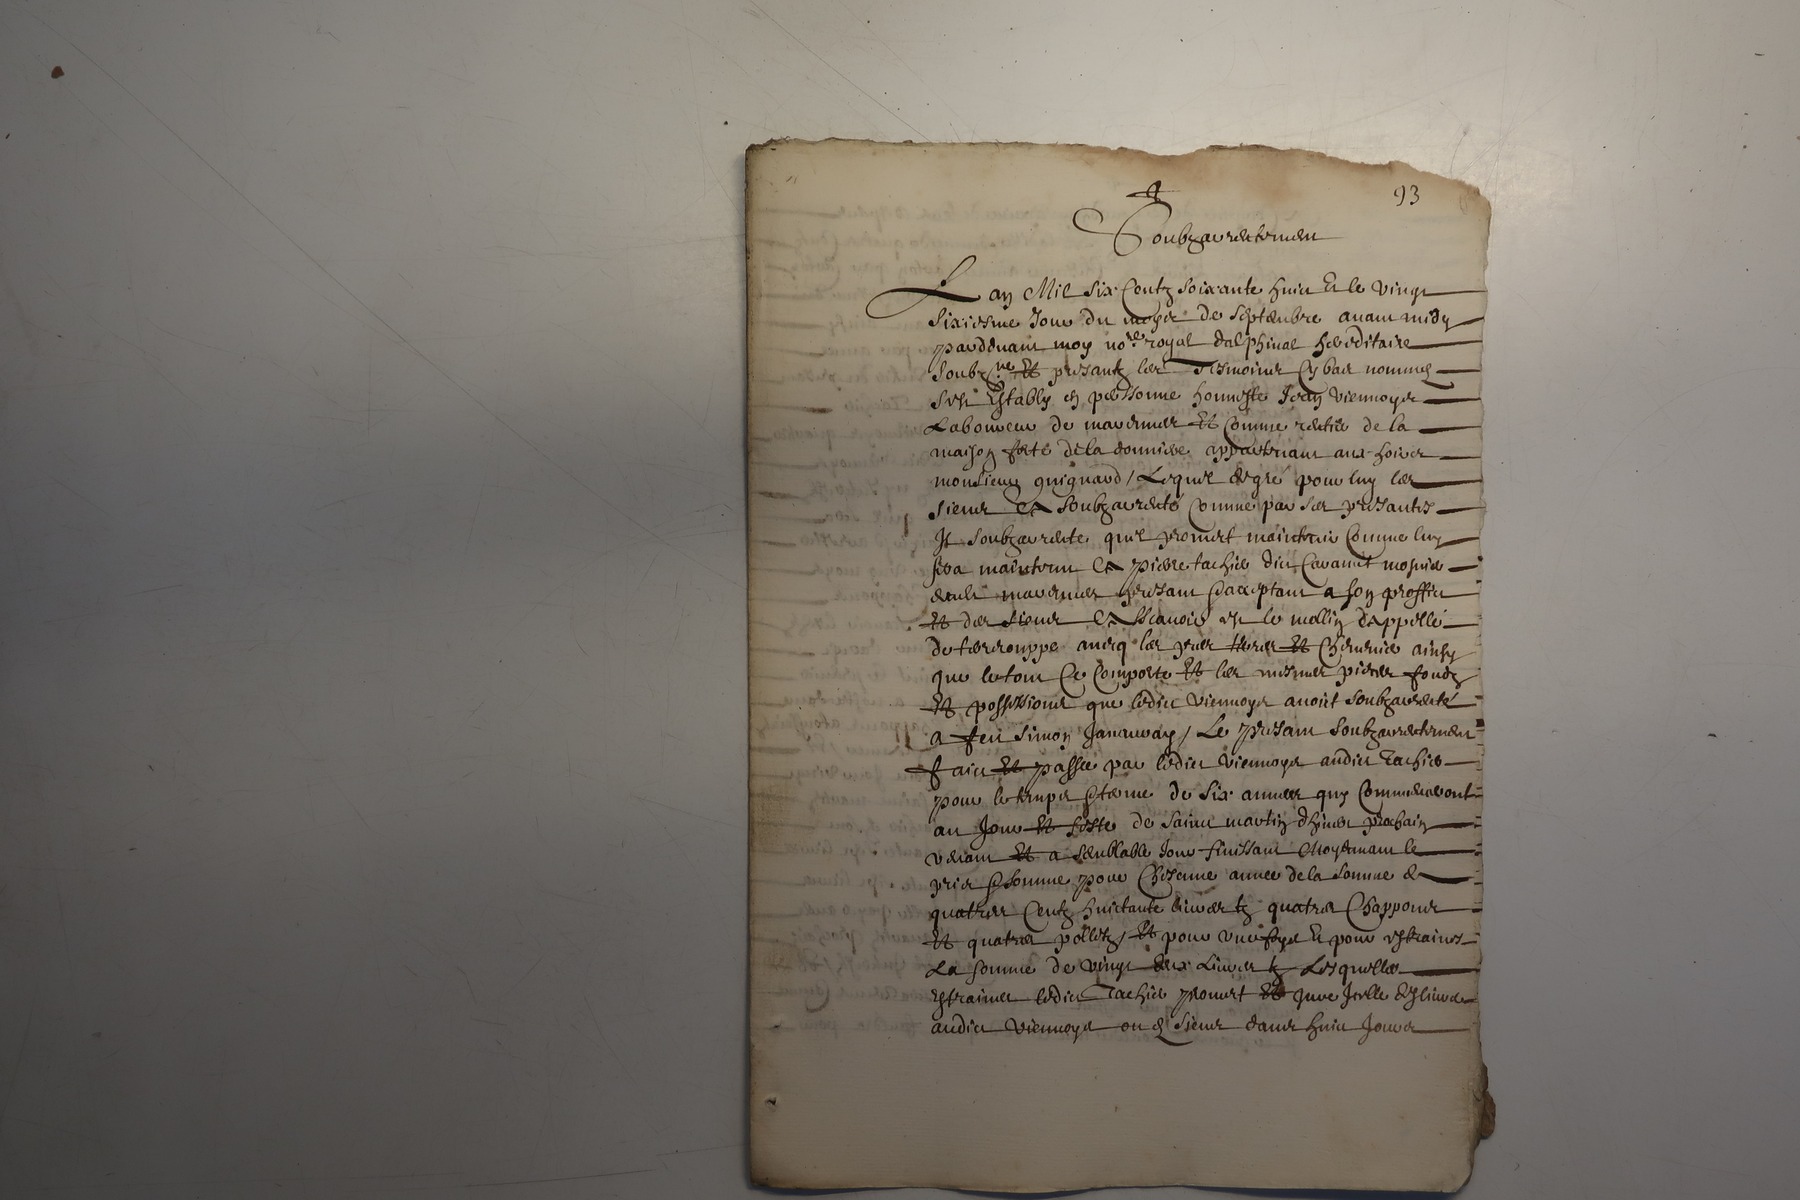 93
Soubzarrentement
Lan Mil Six Centz Soixante huict Et le Vingt
Sixiesme Jour du moys de Septembre avant midy
pardevant moy no.re royal dalphinal hereditaire
Soubz.ne Et presantz les Tesmoins Cy bas nommes
Sest Estably en personne honneste Jean Viennoys
Laboureur de Et Comme rentier de la
maison forte dela appartenant aux hoirs
monsieur guignard / Lequel de gré pour luy les
siens Ca Soubzarrenté Comme par ses presantes
Il Soubzarrente quil promet maintenir Comme luy
sera maintenu Ca pierre tachier dict mosnier
presant & acceptant a son proffict
Et des siens Ca Scavoir est le mollin dappellé
de avecq les Et ainsy
que letout Ce Comporte Et les mesmes pieces fondz
Et possessions que ledict Viennoys avoit Soubzarrenté
a feu Simon / Le presant Soubzarrentement
faict Et passée par ledict Viennoys audict Tachier
pour letemps & terme de Six annees quy Commenceront
au Jour Et feste de Sainct martin dhiver prochain
venant Et a Semblable Jour finissant Moyennant le
pris & somme pour Chascune annee dela Somme de
quatres Centz huictante livres tz quatres Chappons
Et quatres polletz / Et pour une foys Et pour estraines
La somme de Vingt deux Livres tz Lesquelles
estraines ledict Tachier promet Et Jure Icelle Eslivrer
audict Viennoys ou es Siens dans huict Jours